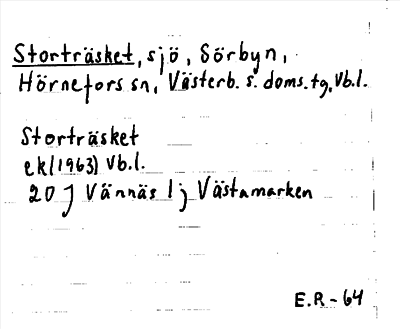 Storträsket, sjö, Sörbyn,
Hörnefors sn, Västerb. s. doms. tg, Vb.l.
Storträsket
ek(1963) Vb.l.
20 J Vännäs l j Västamarken
E.R-64